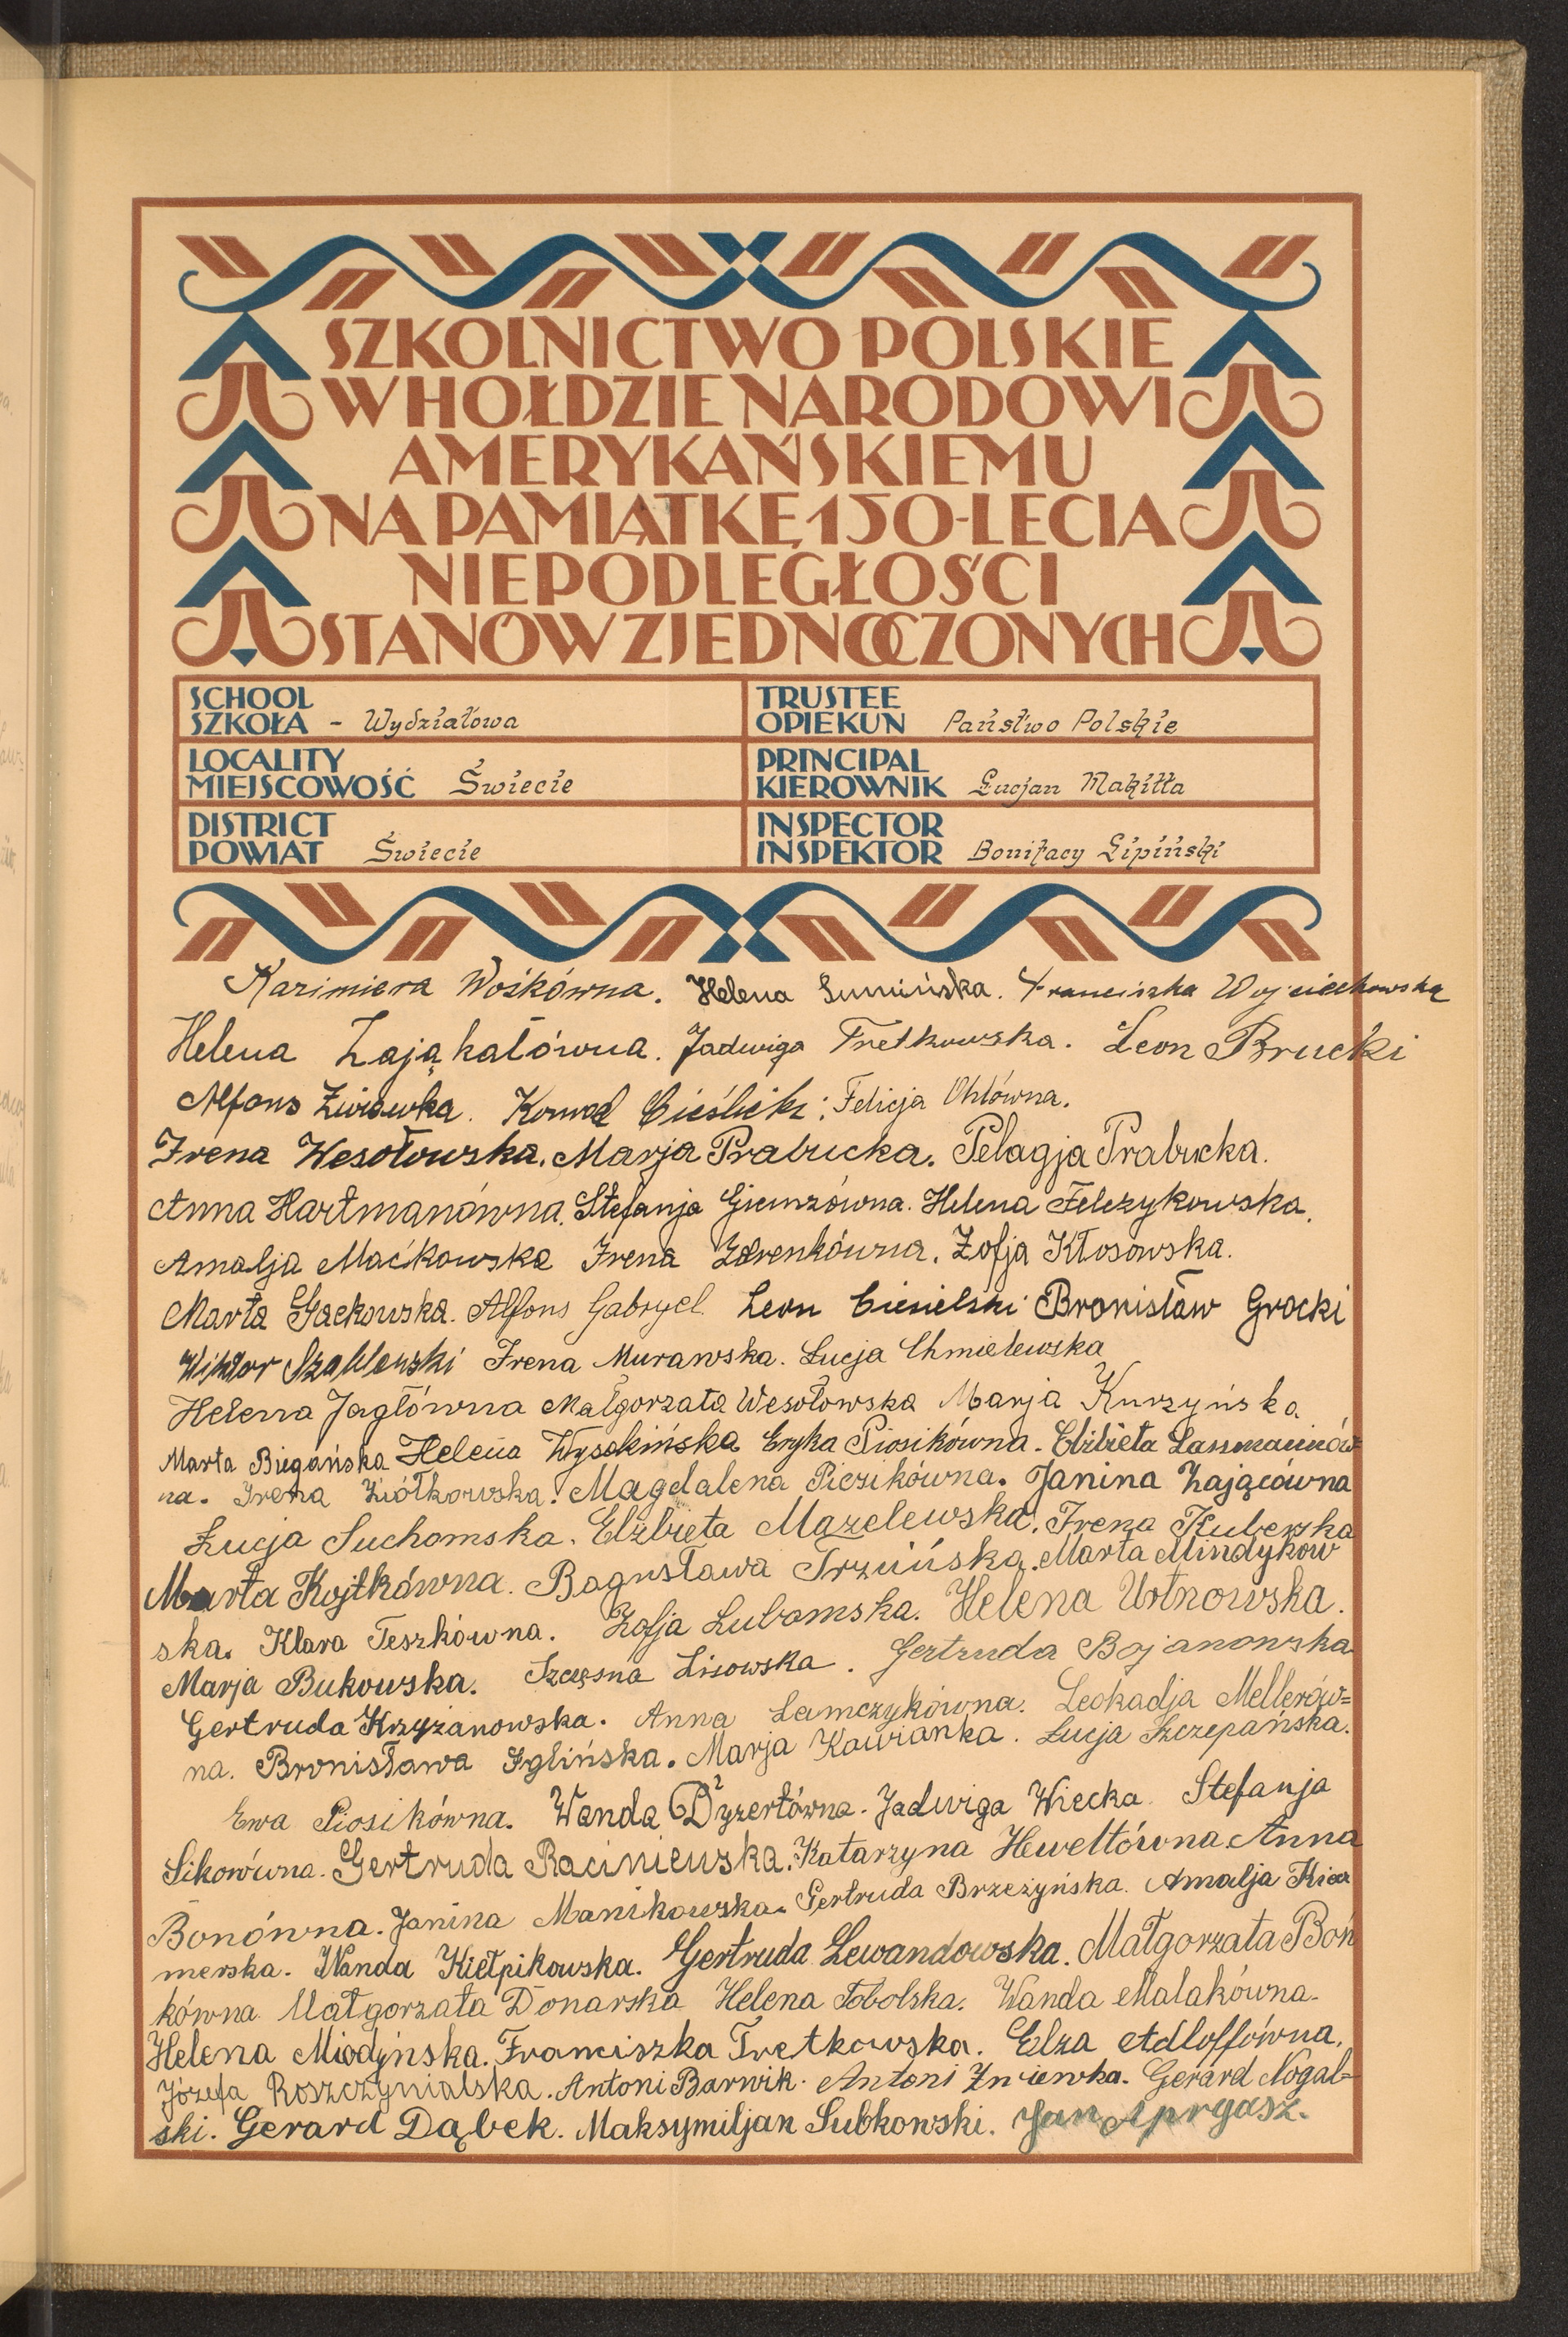 SZKOLNICTWO POLSKIE
W HOŁDZIE NARODOWI
AMERYKAŃSKIEMU
NA PAMIĄTKĘ 150-LECIA
NIEPODLEGŁOŚCI
STANÓW ZJEDNOCZONYCH
SCHOOL
SZKOŁA - Wydziałowa
TRUSTEE
OPIEKUN Państwo Polskie
LOCALITY
MIEJSCOWOŚĆ Świecie
PRINCIPAL
KIEROWNIK Lucjan Makiłła
DISTRICT
POWIAT Świecie
INSPECTOR
INSPEKTOR Bonifacy Lipiński
Kazimiera Wośkówna. Helena Sumińska. Franciszka Wojciechowska
Helena Zająckałówna. Jadwiga Fretkowska. Leon Brucki
Alfons Żwiewka. Konrad Cieślicki; Felicja Ohlówna.
Irena Wesołowska. Marja Prabucka. Pelagja Prabucka.
Anna Hartmanówna. Stefanja Giemzówna. Helena Felczykowska.
Amalja Maćkowska Irena Zdrenkówna. Zofja Kłosowska.
Marta Gackowska. Alfons Gabryel Leon Ciesielski Bronisław Grocki
Wiktor Szablewski Irena Murawska. Łucja Chmielewska
Helena Jagłówna Małgorzata Wesołowska Marja Kurzyńska
Marta Biegańska Helena Wysokińska Eryka Piosikówna. Elżbieta Lassmannów-
na. Irena Ziółkowska. Magdalena Piesikówna. Janina Zającówna
Łucja Suchomska. Elżbieta Mazelewska. Irena Kuberska
Marta Kojtkówna. Bogusława Trzcińska. Marta Mindykow
ska. Klara Teszkówna. Zofja Lubomska. Helena Ustnowska.
Marja Bukowska. Szczęsna Lisowska. Gertruda Bojanowska
Gertruda Krzyżanowska. Anna Lamczykówna. Leokadja Mellerów=
na. Bronisława Iglińska. Marja Kawianka. Łucja Szczepańska.
Ewa Piosikówna. Wanda Dyzertówna. Jadwiga Wiecka. Stefanja
Sikorówna. Gertruda Raciniewska. Katarzyna Heweltówna. Anna
Bonówna. Janina Manikowska. Gertruda Brzeżyńska. Amalja Kier
merska. Wanda Kiełpikowska. Gertruda Lewandowska. Małgorzata Boń
kówna. Małgorzata Donarska Helena Tobolska. Wanda Malakówna.
Helena Miodyńska. Franciszka Tretkowska. Elza Adloffówna.
Józefa Roszczynialska. Antoni Barwik. Antoni Żniewka. Gerard Nogal=
ski. Gerard Dąbek. Maksymiljan Subkowski. Jan